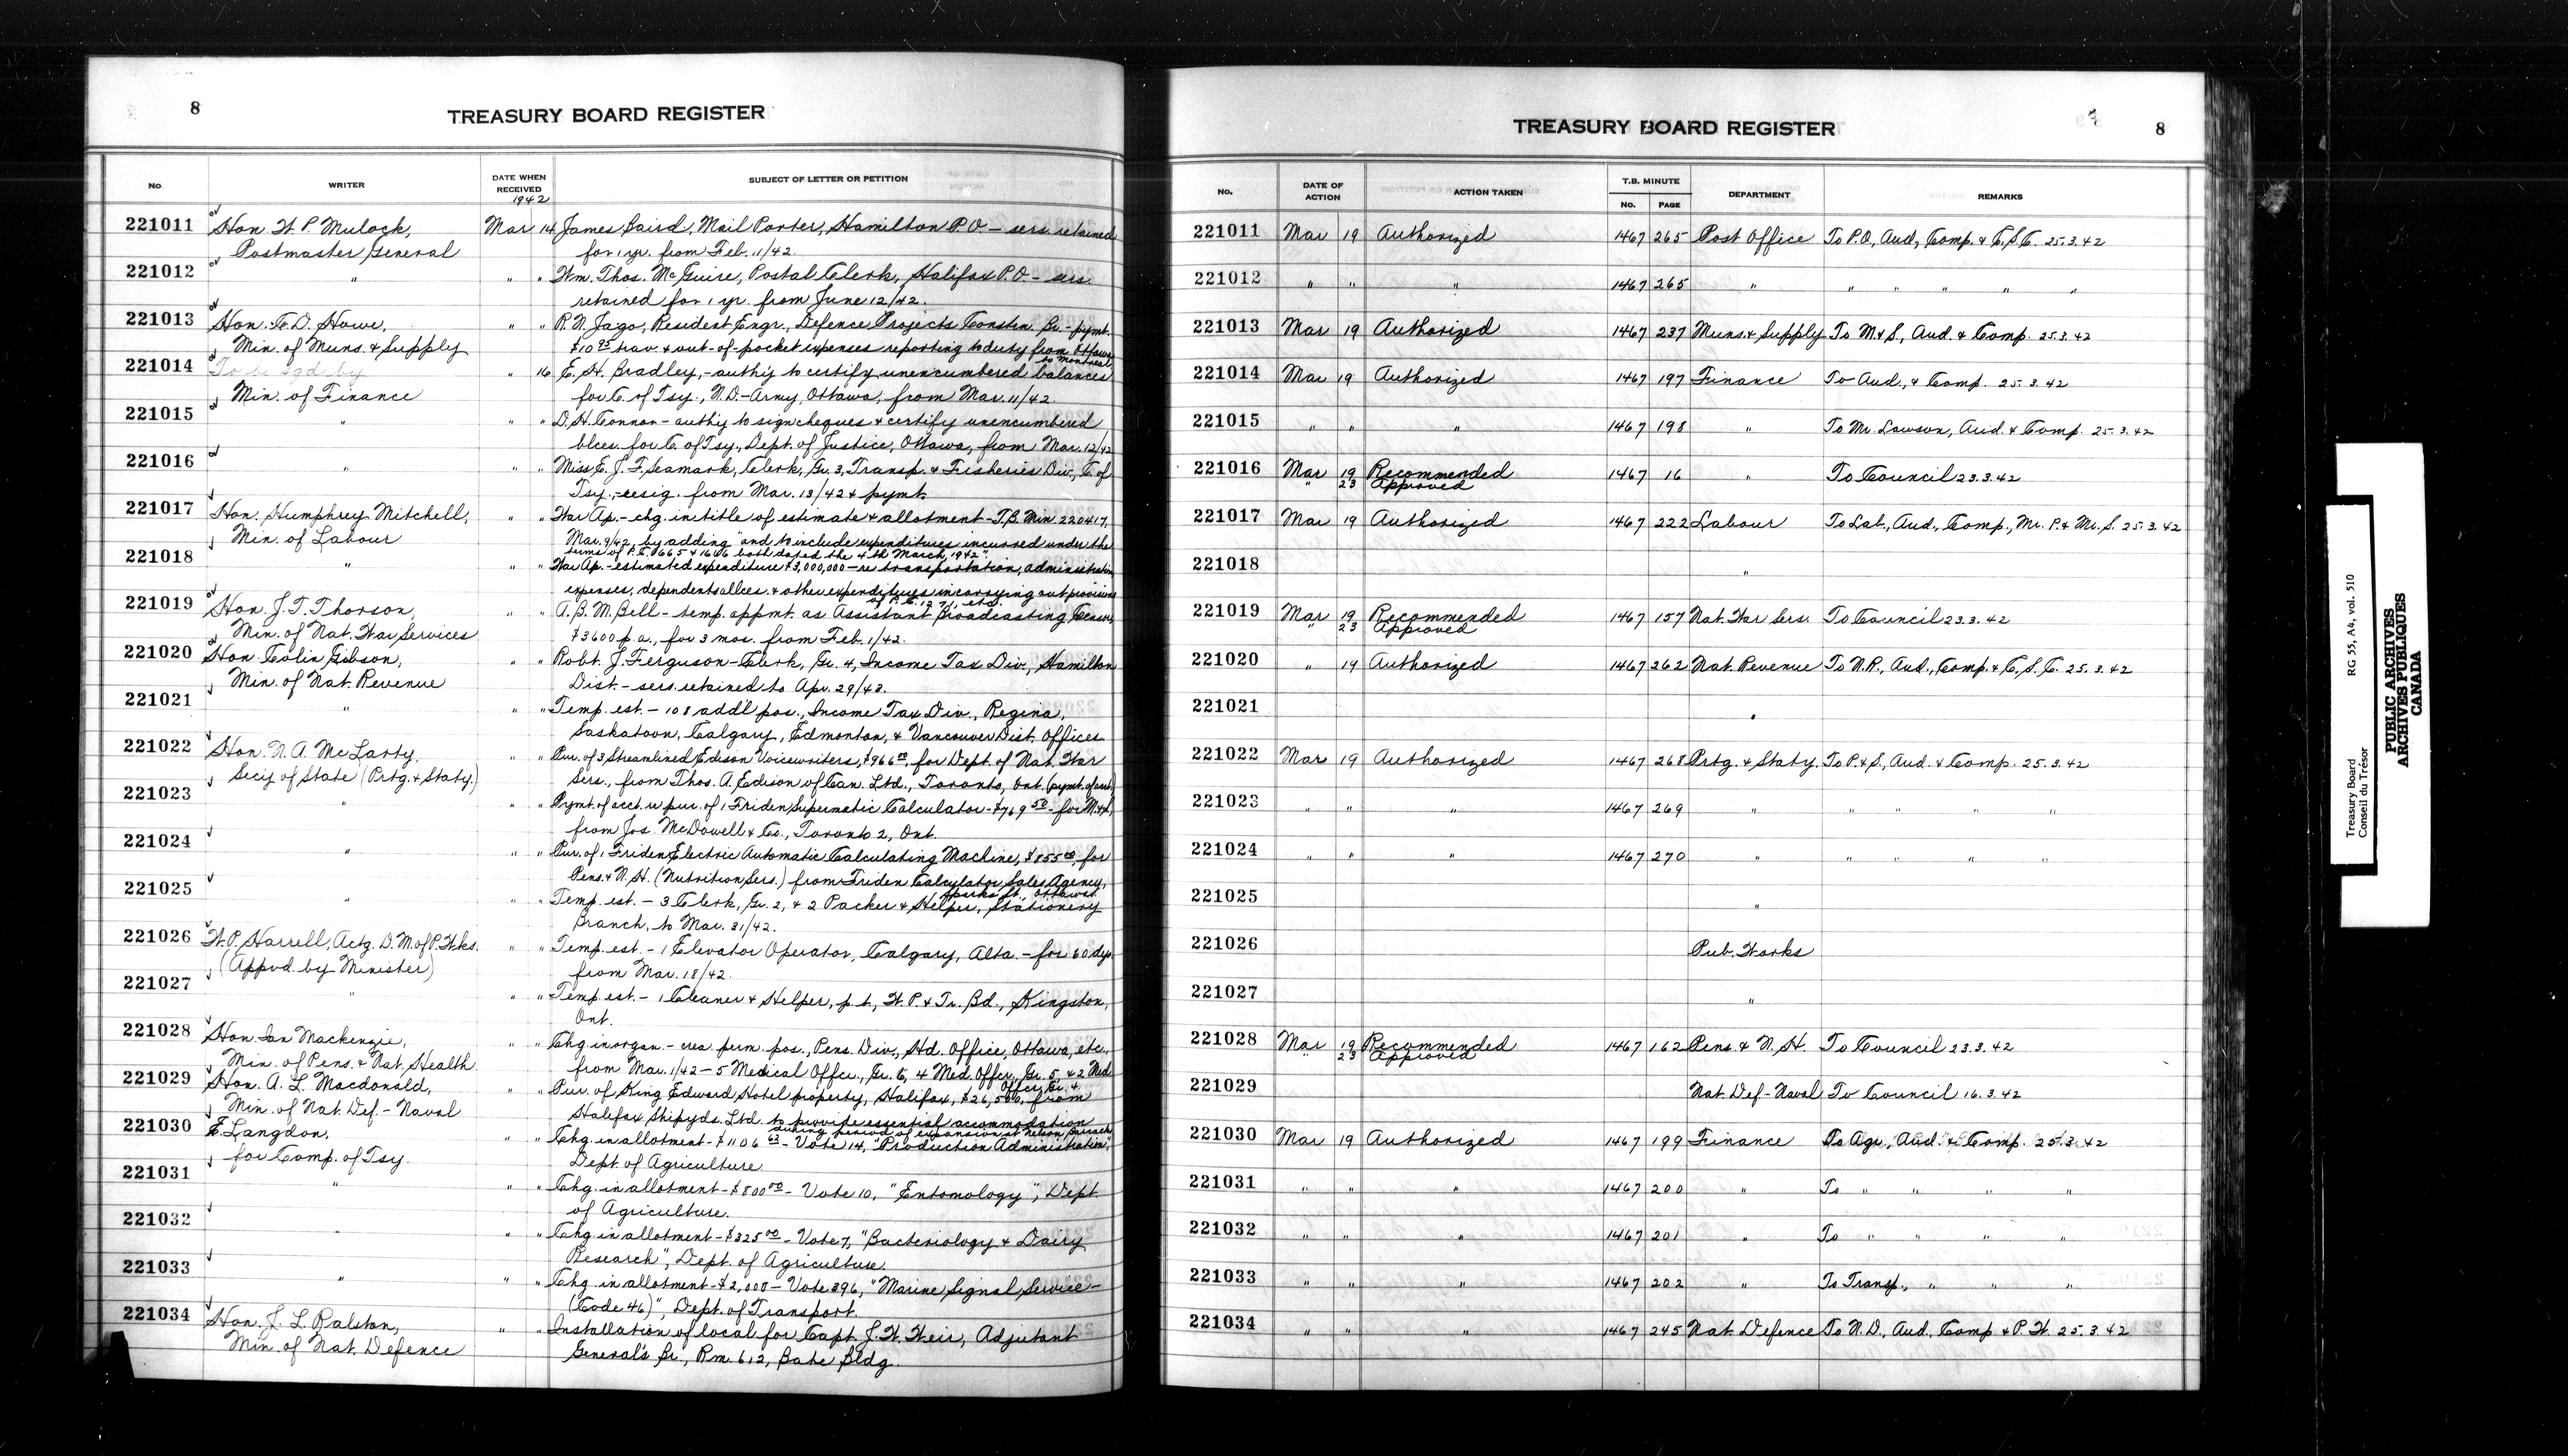 8
TREASURY BOARD REGISTER
No. WRITER DATE WHEN RECEIVED SUBJECT OF LETTER OR PETITION
1942
221011 Hon. W. P. Mulock, Mar 14 James Baird, Mail Porter, Hamilton P.O. - sers. retained
Postmaster General for 1 yr. from Feb. 11/42.
221012 " " " Wm. Thos. McGuire, Postal Clerk, Halifax P.O. - sers.
retained for 1 yr. from June 12/42.
221013 Hon. C. D. Howe, " " R. N. Jago, Resident Engr., Defence Projects Constn. Br. - pymt.
Min. of Muns. & Supply $10 95 trav. & out-of-pocket expenses reporting to duty from Ottawa
to Montreal
221014 To be sgd by " 16 E. H. Bradley, - authy to certify unencumbered balances
Min. of Finance for C. of Tsy., N.D. - Army, Ottawa, from Mar. 11/42.
221015 " " " D. H. Connor - authy to sign cheques & certify unencumbered
blces. for C. of Tsy., Dept. of Justice, Ottawa, from Mar. 12/42
221016 " " " Miss E. J. F. Seamark, Clerk, Gr. 3, Transp. & Fisheries Div., C. of
Tsy. - resig. from Mar. 13/42 & pymt.
221017 Hon. Humphrey Mitchell, " " War Ap. - chg. in title of estimate & allotment - T.B. Min 220417,
Min. of Labour Mar. 9/42, by adding "and to include expenditures incurred under the
terms of P.C. 1665 & 1666 both dated the 4th March, 1942".
221018 " " " War Ap. - estimated expenditure $3,000,000 - re transportation, administration
expenses, dependents allces. & other expenditures in carrying out provisions
221019 Hon. J. T. Thorson, " " A. B. M. Bell - temp. appmt. as Assistant Broadcasting Censor,
Min. of Nat. War Services $3600 p.a., for 3 mos. from Feb. 1/42.
221020 Hon. Colin Gibson, " " Robt. J. Ferguson - Clerk, Gr. 4, Income Tax Div., Hamilton
Min. of Nat. Revenue Dist. - sers. retained to Apr. 29/43.
221021 " " " Temp. est. - 108 addl pos., Income Tax Div., Regina,
Saskatoon, Calgary, Edmonton, & Vancouver Dist. Offices.
221022 Hon. N. A. McLarty, " " Pur. of 3 Streamlined Edison Voicewriters, $966 00, for Dept. of Nat. War
Secy of State (Prtg. & Staty.) Sers., from Thos. A. Edison of Can. Ltd., Toronto, Ont. (pymt. of acct.)
221023 " " " Pymt. of acct. re pur. of 1 Friden Supermatic Calculator - $769 50 - for M. & S.,
from Jos. McDowell & Co., Toronto 2, Ont.
221024 " " " Pur. of 1 Friden Electric Automatic Calculating Machine, $855 00, for
Pens. & N. H. (Nutrition Sers.) from Friden Calculator Sales Agency,
Sparks St., Ottawa.
221025 " " " Temp. est. - 3 Clerk, Gr. 2, & 2 Packer & Helper, Stationery
Branch, to Mar. 31/42.
221026 W. P. Harrell, Actg. D. M. of P. Wks. " " Temp. est. - 1 Elevator Operator, Calgary, Alta. - for 60 dys.
(Appvd. by Minister) from Mar. 18/42.
221027 " " " Temp. est. - 1 Cleaner & Helper, p.t., W. P. & Tr. Bd., Kingston,
Ont.
221028 Hon. Ian Mackenzie, " " Chg. in organ. - crea. perm. pos., Pens. Div., Hd. Office, Ottawa, etc.,
Min. of Pens. & Nat. Health from Mar. 1/42 - 5 Medical Offcr., Gr. 6, 4 Med. Offcr., Gr. 5, & 2 Med.
Offcr., Gr. 4
221029 Hon. A. L. Macdonald, " " Pur. of King Edward Hotel property, Halifax, $26,500, from
Min. of Nat. Def. - Naval Halifax Shipyds. Ltd. to provide essential accommodation
during period of expansion at Nelson Barracks
221030 E. Langdon, " " Chg. in allotment - $1106 63 - Vote 14, "Production Administration",
for Comp. of Tsy. Dept. of Agriculture.
221031 " " " Chg. in allotment - $800 00 - Vote 10, "Entomology", Dept.
of Agriculture.
221032 " " " Chg. in allotment - $325 00 - Vote 7, "Bacteriology & Dairy
Research", Dept. of Agriculture.
221033 " " " Chg. in allotment - $2,000 - Vote 396, "Marine Signal Service -
(Code 46)", Dept. of Transport.
221034 Hon. J. L. Ralston, " " Installation of local for Capt. J. W. Weir, Adjutant
Min. of Nat. Defence General's Br., Rm. 612, Bate Bldg.
TREASURY BOARD REGISTER
8
No. DATE OF ACTION ACTION TAKEN T.B. MINUTE No. PAGE DEPARTMENT REMARKS
221011 Mar 19 Authorized 1467 265 Post Office To P.O., Aud., Comp. & C.S.C. 25.3.42
221012 " " " 1467 265 " " " " " "
221013 Mar 19 Authorized 1467 237 Muns. & Supply To M. & S., Aud. & Comp. 25.3.42
221014 Mar 19 Authorized 1467 197 Finance To Aud., & Comp. 25.3.42
221015 " " " 1467 198 " To Mr. Lawson, Aud. & Comp. 25.3.42
221016 Mar 19 Recommended 1467 16 " To Council 23.3.42
" 23 Approved
221017 Mar 19 Authorized 1467 222 Labour To Lab., Aud., Comp., Mr. P. & Mr. S. 25.3.42
221018 "
221019 Mar 19 Recommended 1467 157 Nat. War Sers. To Council 23.3.42
" 23 Approved
221020 " 19 Authorized 1467 262 Nat. Revenue To N.R., Aud., Comp. & C.S.C. 25.3.42
221021 "
221022 Mar 19 Authorized 1467 268 Prtg. & Staty. To P. & S., Aud. & Comp. 25.3.42
221023 " " " 1467 269 " " " " "
221024 " " " 1467 270 " " " " "
221025 "
221026 Pub. Works
221027 "
221028 Mar 19 Recommended 1467 162 Pens. & N. H. To Council 23.3.42
" 23 Approved
221029 Nat. Def - Naval To Council 16.3.42
221030 Mar 19 Authorized 1467 199 Finance To Agr., Aud. & Comp. 25.3.42
221031 " " " 1467 200 " To " " " "
221032 " " " 1467 201 " To " " " "
221033 " " " 1467 202 " To Transp., " " "
221034 " " " 1467 245 Nat. Defence To N.D., Aud., Comp. & P.W. 25.3.42
Treasury Board RG 55, A4, vol. 510
Conseil du Trésor
PUBLIC ARCHIVES
ARCHIVES PUBLIQUES
CANADA